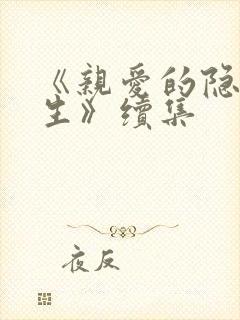 《親愛的隐
生》續集
夜反